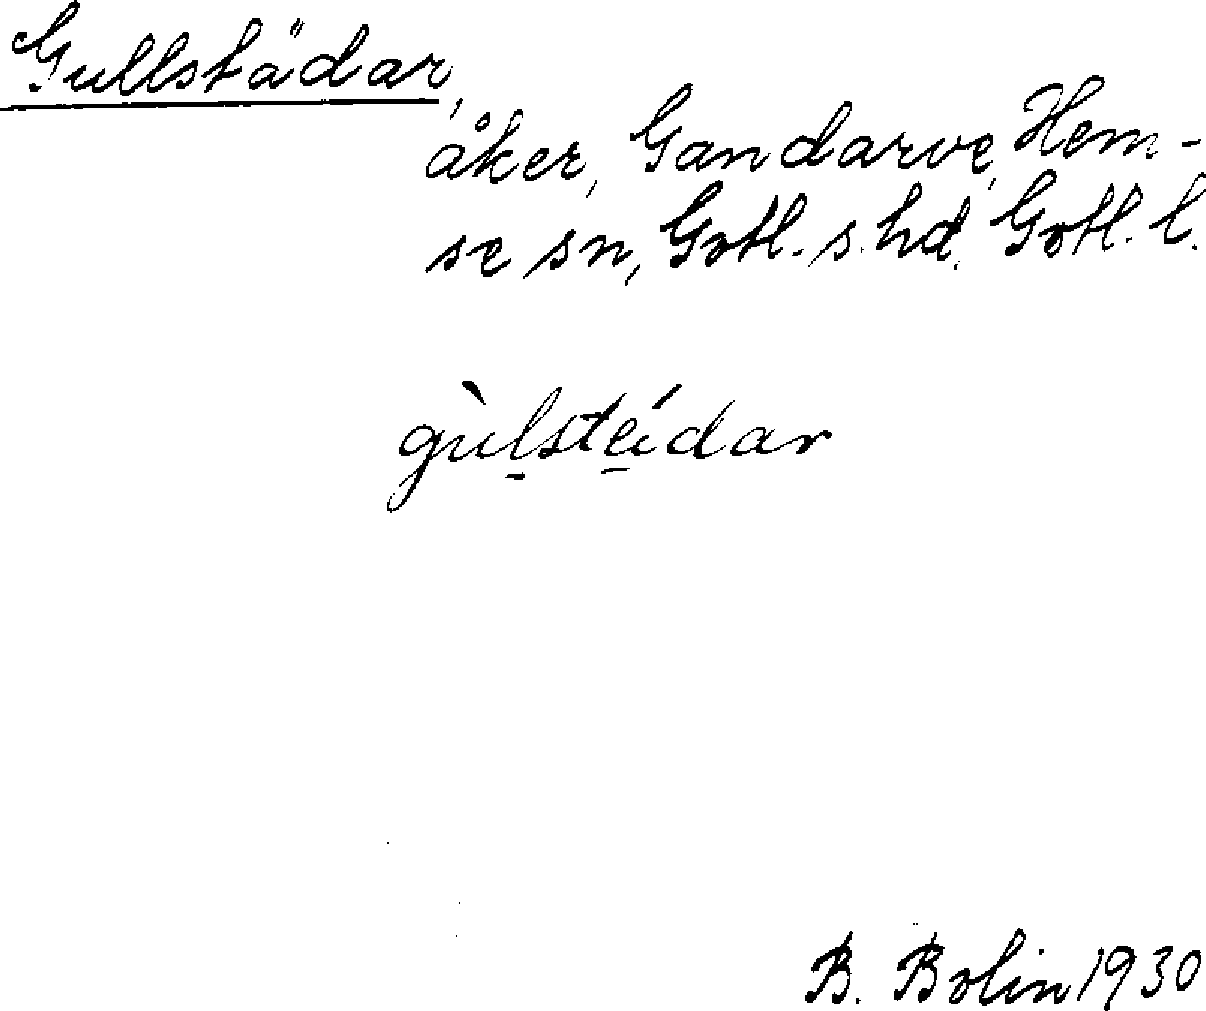 Gullstädar,
åker, Gandarve, Hem-
se sn, Gotl. s. hd. Gotl. l.
gùlsteídar
B. Bolin 1930